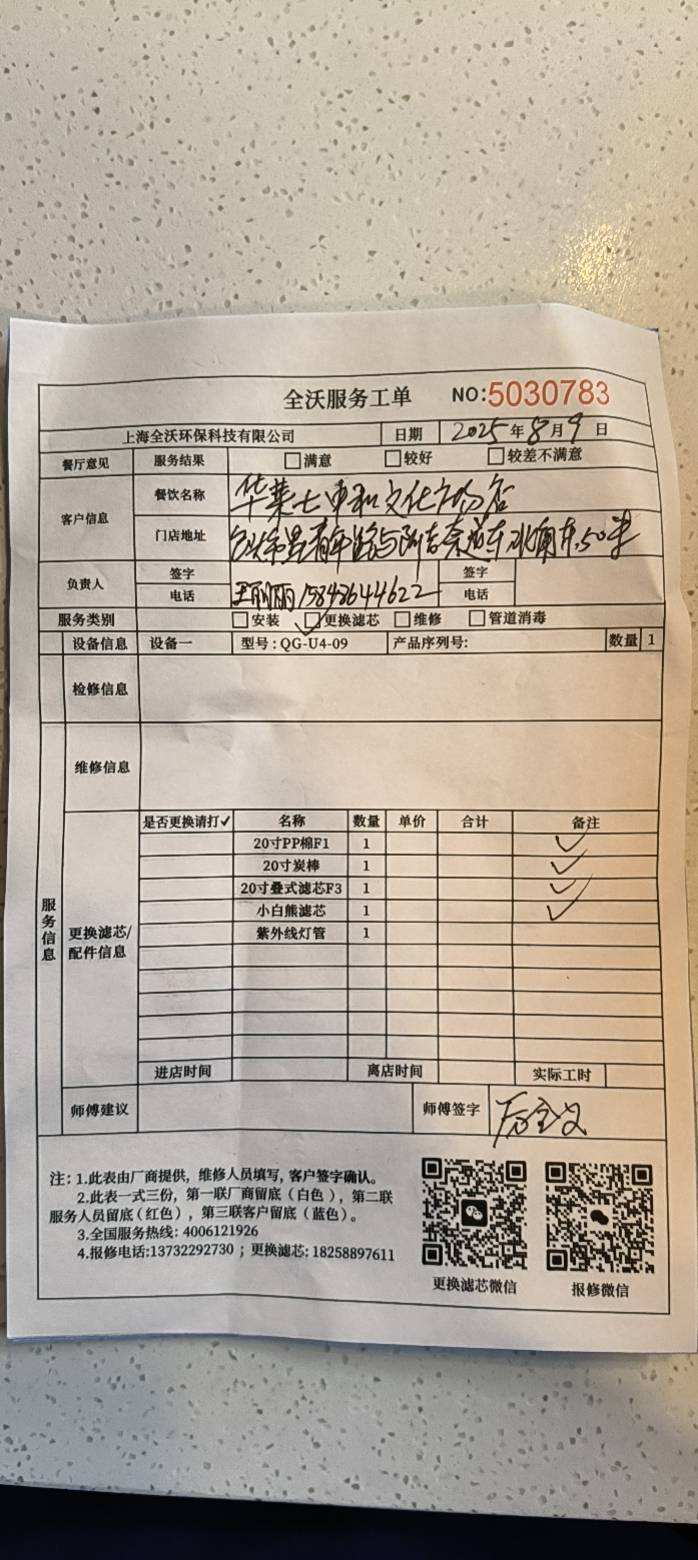 全沃服务工单 NO:5030783
上海全沃环保科技有限公司 日期 2025年8月9日
餐厅意见 服务结果 □满意 □较好 □较差不满意
客户信息 餐饮名称 华莱士 文化广场店
门店地址 青年路与 东北角东50米
负责人 签字 签字
电话 王丽丽 15843644622 电话
服务类别 □安装 ☑更换滤芯 □维修 □管道消毒
设备信息 设备一 型号：QG-U4-09 产品序列号: 数量 1
检修信息
维修信息
服务信息
更换滤芯/
配件信息
是否更换请打✓ 名称 数量 单价 合计 备注
20寸PP棉F1 1 ✓
20寸炭棒 1 ✓
20寸叠式滤芯F3 1 ✓
小白熊滤芯 1 ✓
紫外线灯管 1
进店时间 离店时间 实际工时
师傅建议 师傅签字
注：1.此表由厂商提供，维修人员填写，客户签字确认。
2.此表一式三份，第一联厂商留底（白色），第二联
服务人员留底（红色），第三联客户留底（蓝色）。
3.全国服务热线：4006121926
4.报修电话:13732292730；更换滤芯: 18258897611
更换滤芯微信 报修微信